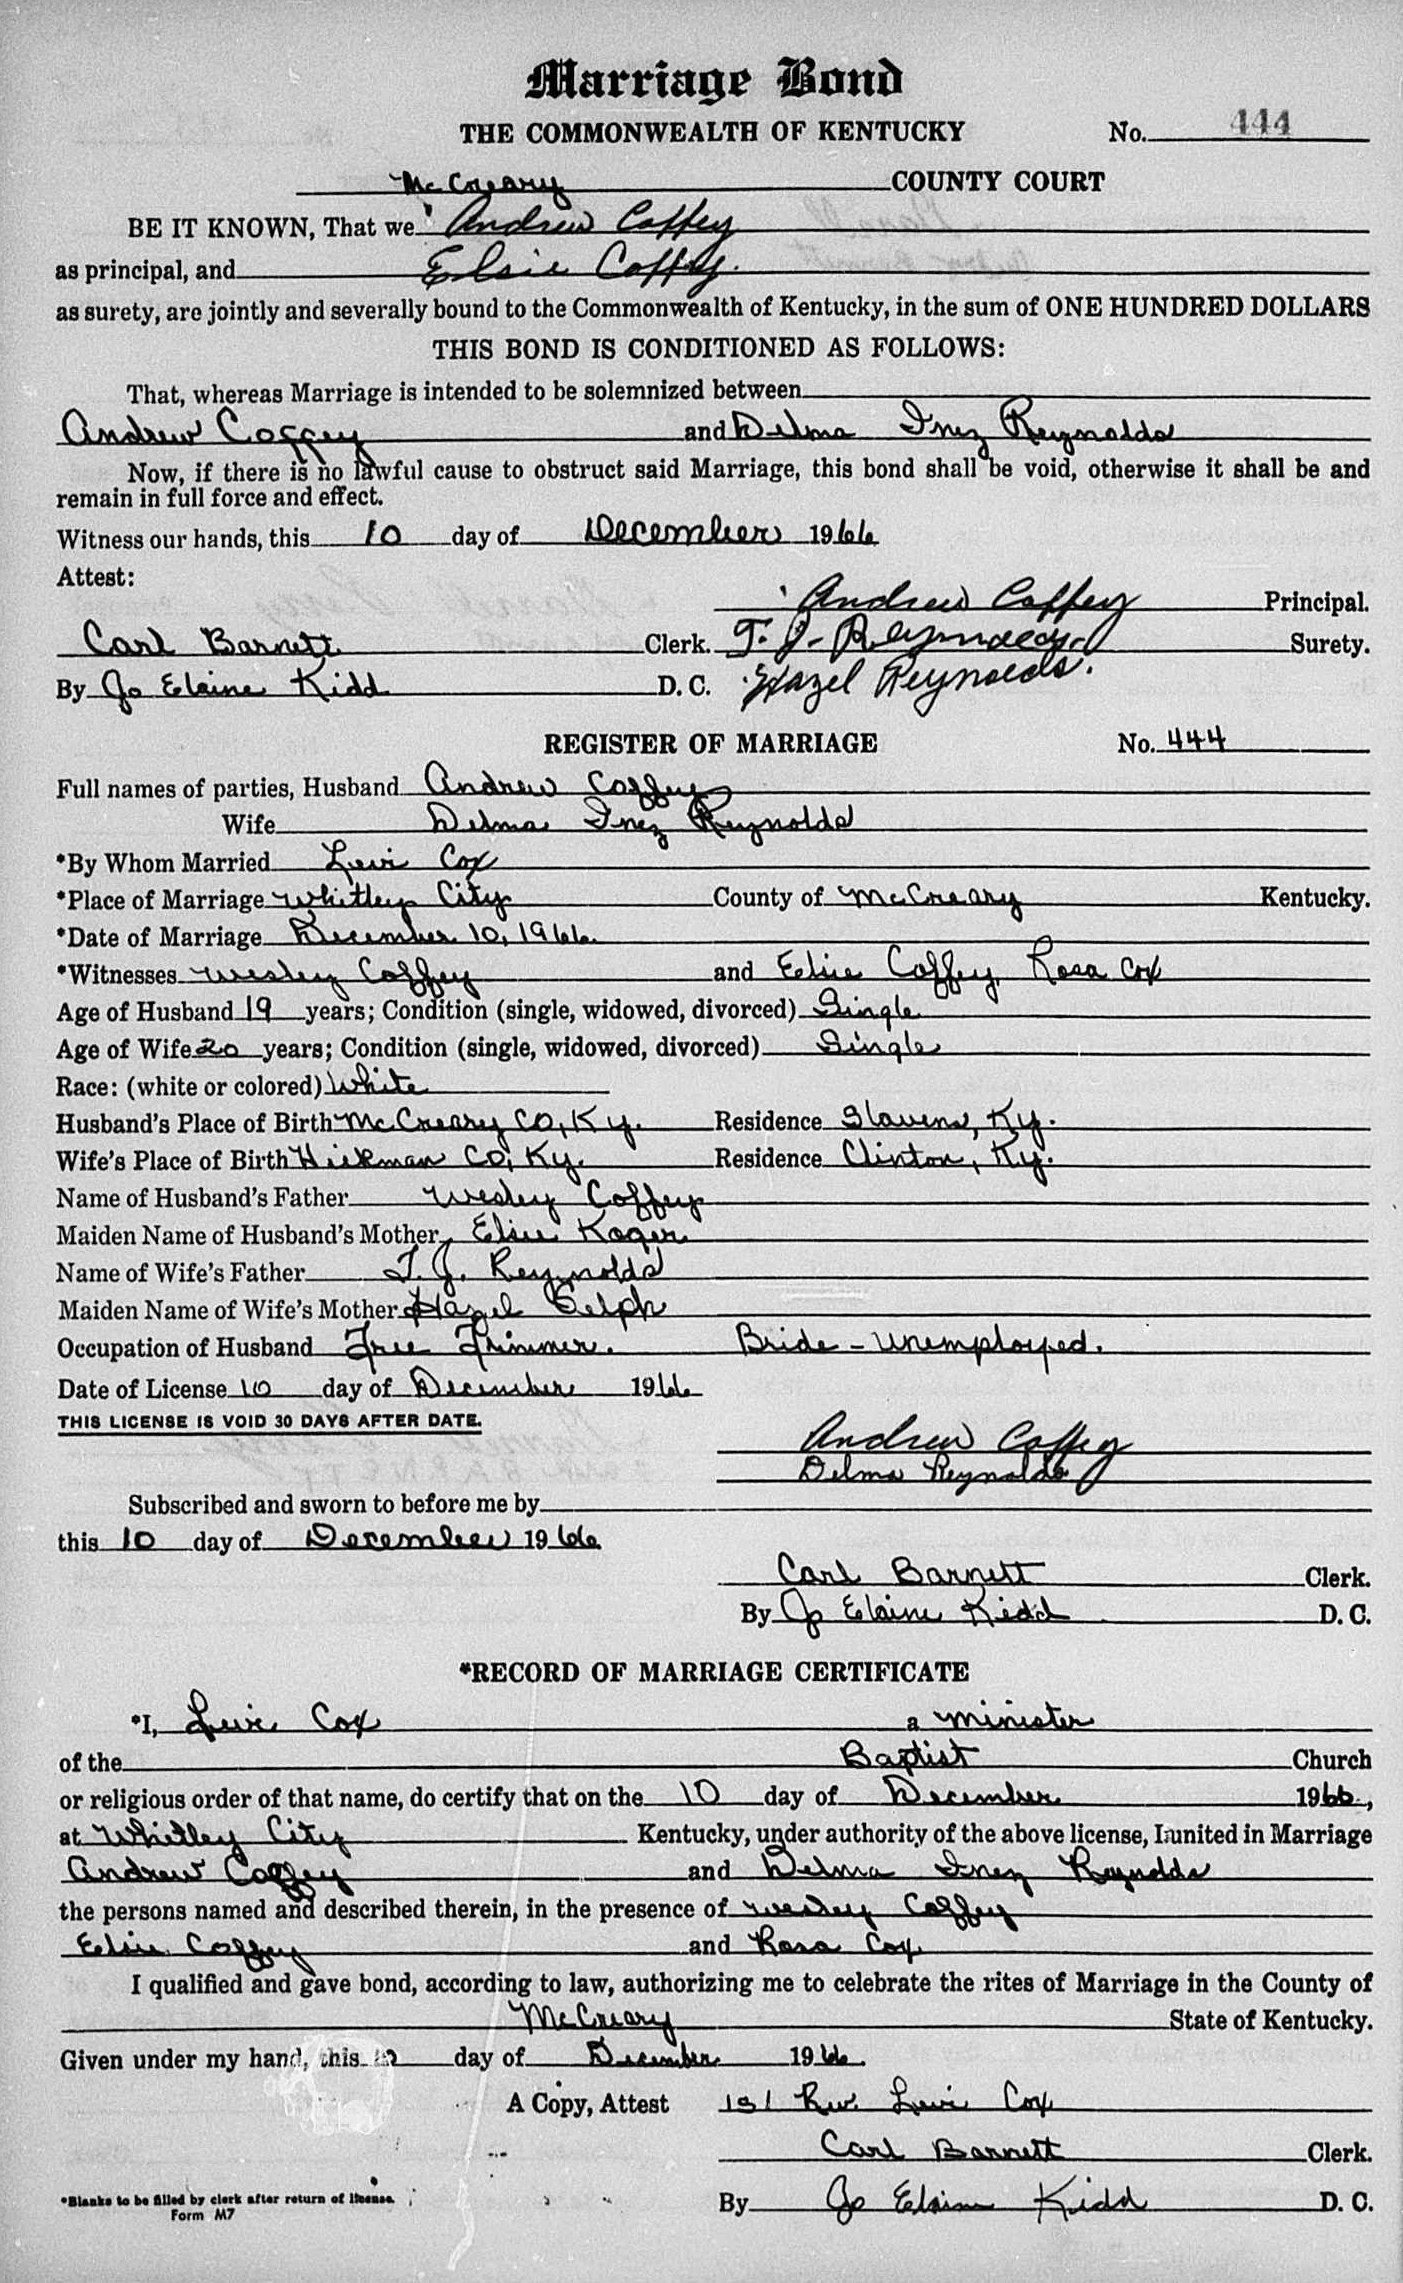 Marriage Bond
THE COMMONWEALTH OF KENTUCKY No. 444
McCreary COUNTY COURT
BE IT KNOWN, That we Andrew Coffey
as principal, and Elsie Coffey.
as surety, are jointly and severally bound to the Commonwealth of Kentucky, in the sum of ONE HUNDRED DOLLARS
THIS BOND IS CONDITIONED AS FOLLOWS:
That, whereas Marriage is intended to be solemnized between
Andrew Coffey and Delma Inez Reynolds
Now, if there is no lawful cause to obstruct said Marriage, this bond shall be void, otherwise it shall be and
remain in full force and effect.
Witness our hands, this 10 day of December 1966
Attest:
Andrew Coffey Principal.
Carl Barnett Clerk. T. J. Reynolds Surety.
By Jo Elaine Kidd D. C. Hazel Reynolds.
REGISTER OF MARRIAGE No. 444
Full names of parties, Husband Andrew Coffey
Wife Delma Inez Reynolds
*By Whom Married Levi Cox
*Place of Marriage Whitley City County of McCreary Kentucky.
*Date of Marriage December 10, 1966.
*Witnesses Wesley Coffey and Elsie Coffey, Rosa Cox
Age of Husband 19 years; Condition (single, widowed, divorced) Single
Age of Wife 20 years; Condition (single, widowed, divorced) Single
Race: (white or colored) White
Husband's Place of Birth McCreary Co, Ky. Residence Slavens, Ky.
Wife's Place of Birth Hickman Co, Ky. Residence Clinton, Ky.
Name of Husband's Father Wesley Coffey
Maiden Name of Husband's Mother Elsie Koger
Name of Wife's Father T. J. Reynolds
Maiden Name of Wife's Mother Hazel Selph
Occupation of Husband Tree Trimmer. Bride - Unemployed.
Date of License 10 day of December 1966
THIS LICENSE IS VOID 30 DAYS AFTER DATE.
Andrew Coffey
Delma Reynolds
Subscribed and sworn to before me by
this 10 day of December 1966
Carl Barnett Clerk.
By Jo Elaine Kidd D. C.
*RECORD OF MARRIAGE CERTIFICATE
*I, Levi Cox a minister
of the Baptist Church
or religious order of that name, do certify that on the 10 day of December 1966,
at Whitley City Kentucky, under authority of the above license, I united in Marriage
Andrew Coffey and Delma Inez Reynolds
the persons named and described therein, in the presence of Wesley Coffey
Elsie Coffey and Rosa Cox
I qualified and gave bond, according to law, authorizing me to celebrate the rites of Marriage in the County of
McCreary State of Kentucky.
Given under my hand, this 10 day of December 1966.
A Copy, Attest /s/ Rev. Levi Cox
Carl Barnett Clerk.
*Blanks to be filled by clerk after return of license.
Form M7
By Jo Elaine Kidd D. C.